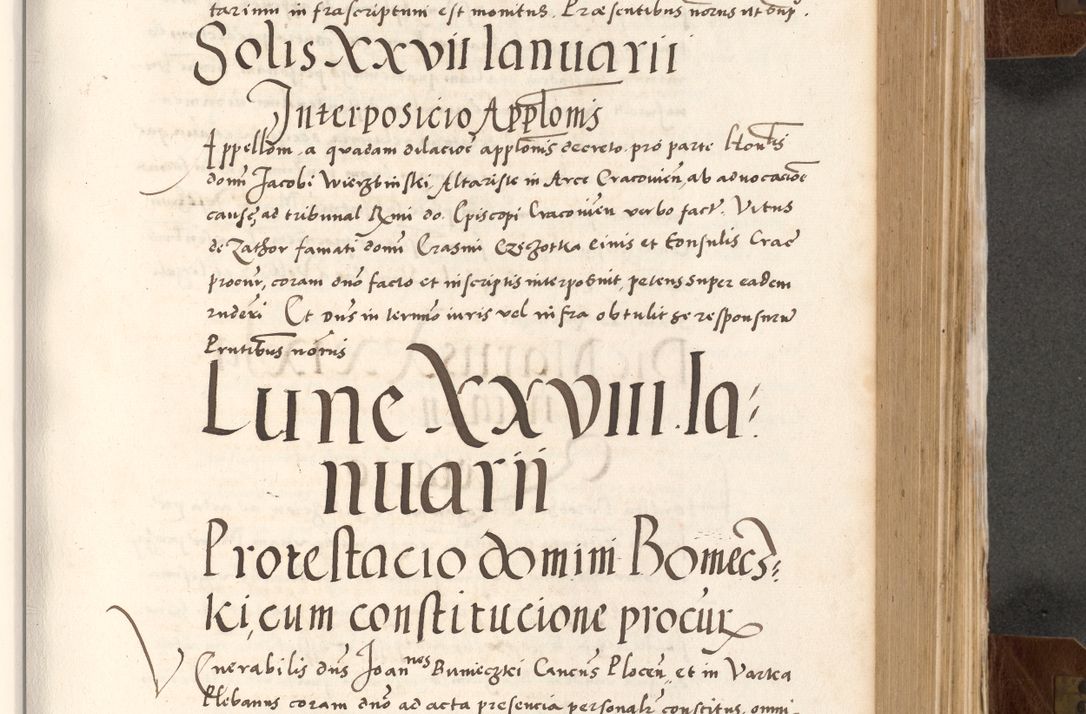 tarium in frascriptum est monitus. Præsentibus notus ut sup.
Solis XXVII Ianuarii
Interposicio Applonis
Appellom. a quadam dilacioē applonis decreto. pro parte Honlis
domi Jacobi Wierzbinski, Altariste in Arce Cracovien, ab advocacioē
causę ad tribunal Rmi do. Episcopi Cracovien verbo fact. Vitus
de Zathor famati domi Erasmi Czeczotka civis et Consulis Crac
procur, coram dno facto et in scriptis interposuit, petens super eadem
Et Dns in termino iuris vel infra obtulit se responsurū
Prntibus notmis
Lune XXVIII. Ia:
nuarii
Protestacio domini Bomecz:
ki, cum constitucione procur
Venerabilis dns Joannes Bumieczki Cancus Plocen, et in Vartca
Plebanus coram dno ad acta presencia personalr constitus, omni-